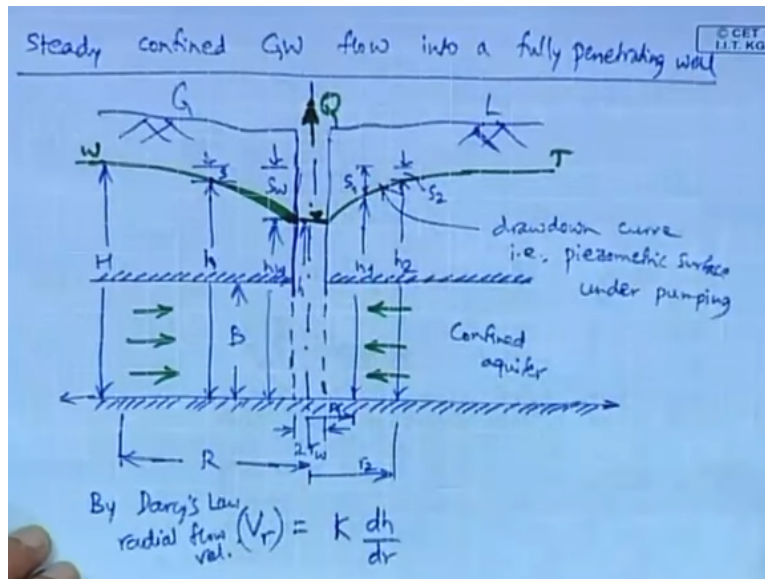 Steady confined GW flow into a fully penetrating well
© CET
I.I.T. KG
G Q L
W T
s Sw S1 S2
H h hw h1 h2
drawdown curve
i.e., piezometric surface
under pumping
B
Confined
aquifer
2rw
R r2
By Darcy's Law
radial flow (Vr) = K dh/dr
vel.